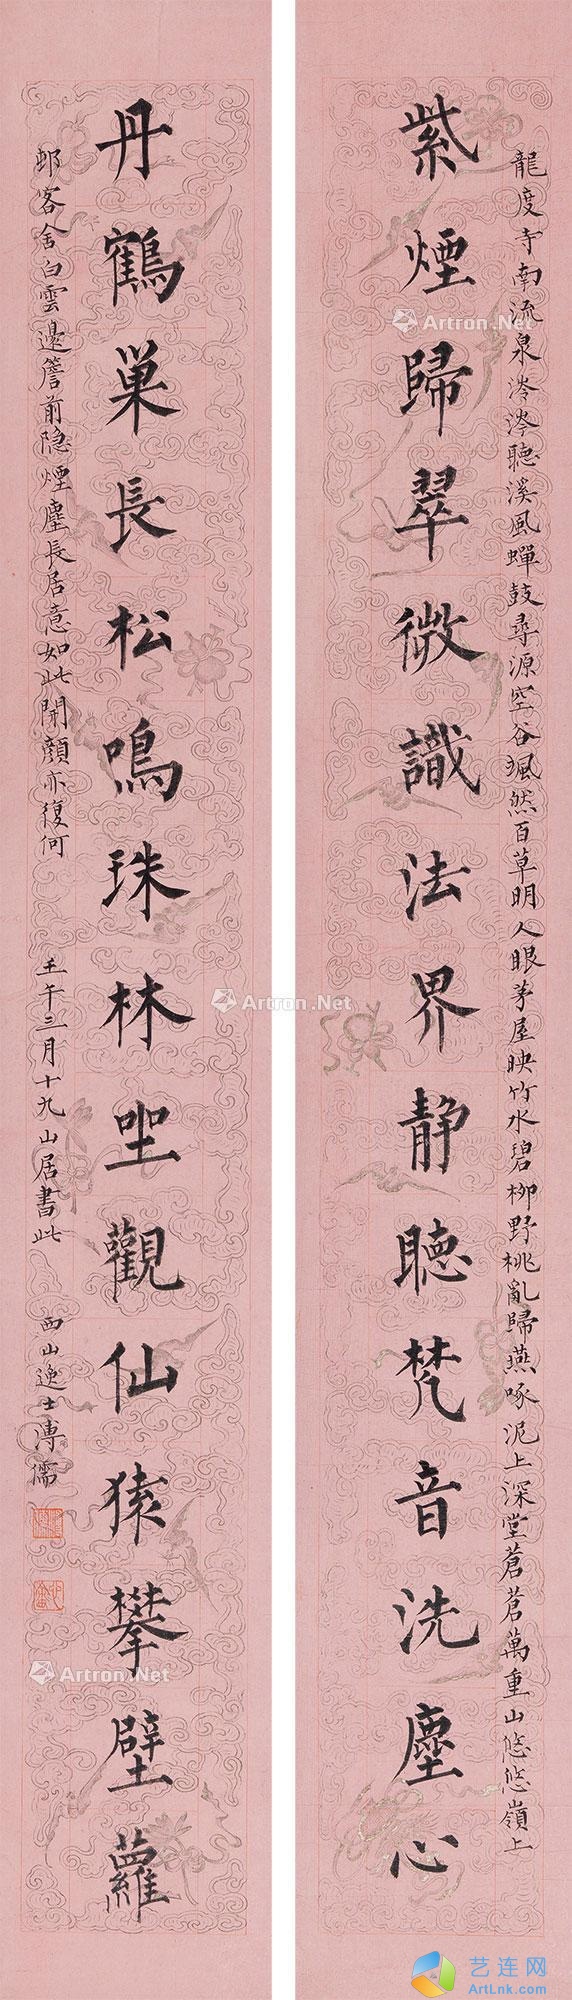 龍度寺南流泉泠泠聽溪風蟬鼓尋源空谷颯然百草明人眼茅屋映竹水碧柳野桃亂歸燕啄泥上深堂蒼蒼萬重山悠悠嶺上
紫煙歸翠微識法界靜聽梵音洗塵心
丹鶴巢長松鳴珠林坐觀仙猿攀壁蘿
客舍白雲邊簷前隐煙塵長居意如此開顏亦復何
壬午三月十九山居書此
西山逸士溥儒
Artron.Net
Artron.Net
Artron.Net
Artron.Net
Artron.Net
Artron.Net
艺连网
ArtLnk.com